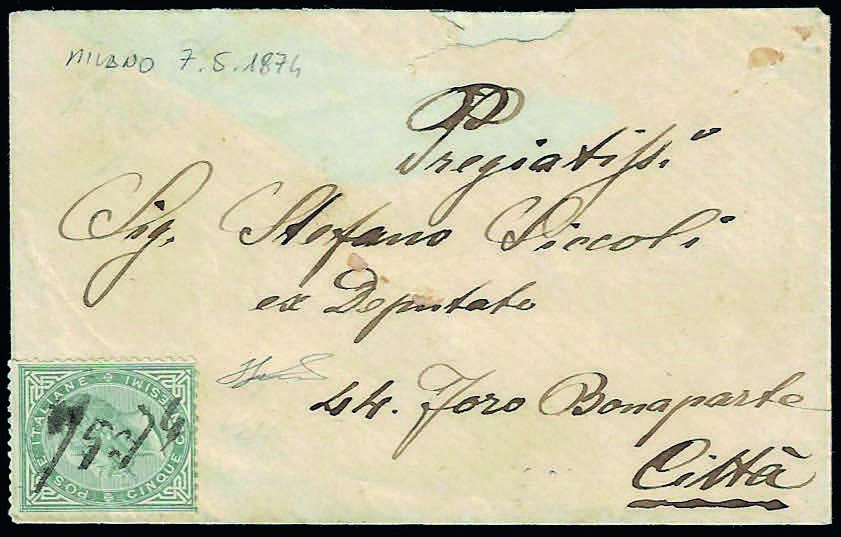 MILANO 7.5.1874
Pregiatiss.º
Sig. Stefano Piccoli
ex Deputato
44. Foro Bonaparte
Città
POSTE ITALIANE
CINQUE CENTESIMI
7/5/74